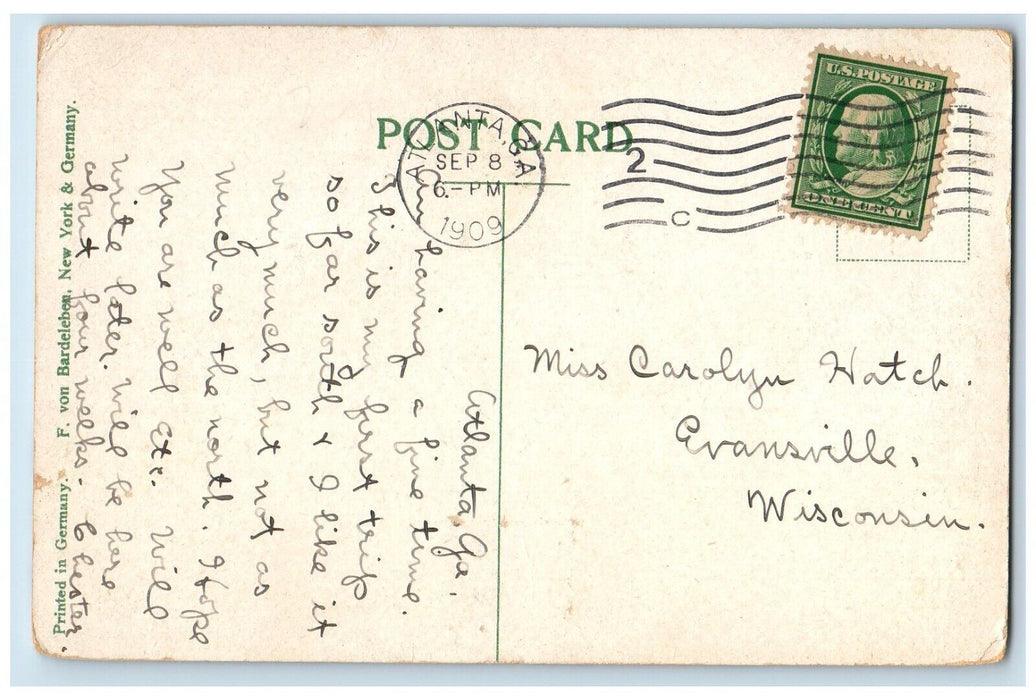 POST CARD
ATLANTA, GA
SEP 8
6-PM
1909
2
C
U.S. POSTAGE
ONE CENT
Miss Carolyn Hatch.
Evansville,
Wisconsin.
Atlanta, Ga.
Am having a fine time.
This is my first trip
so far south & I like it
very much, but not as
much as the north. I hope
You are well etc. Will
write later. Will be here
about four weeks - Chester.
Printed in Germany. F. von Bardeleben, New York & Germany.